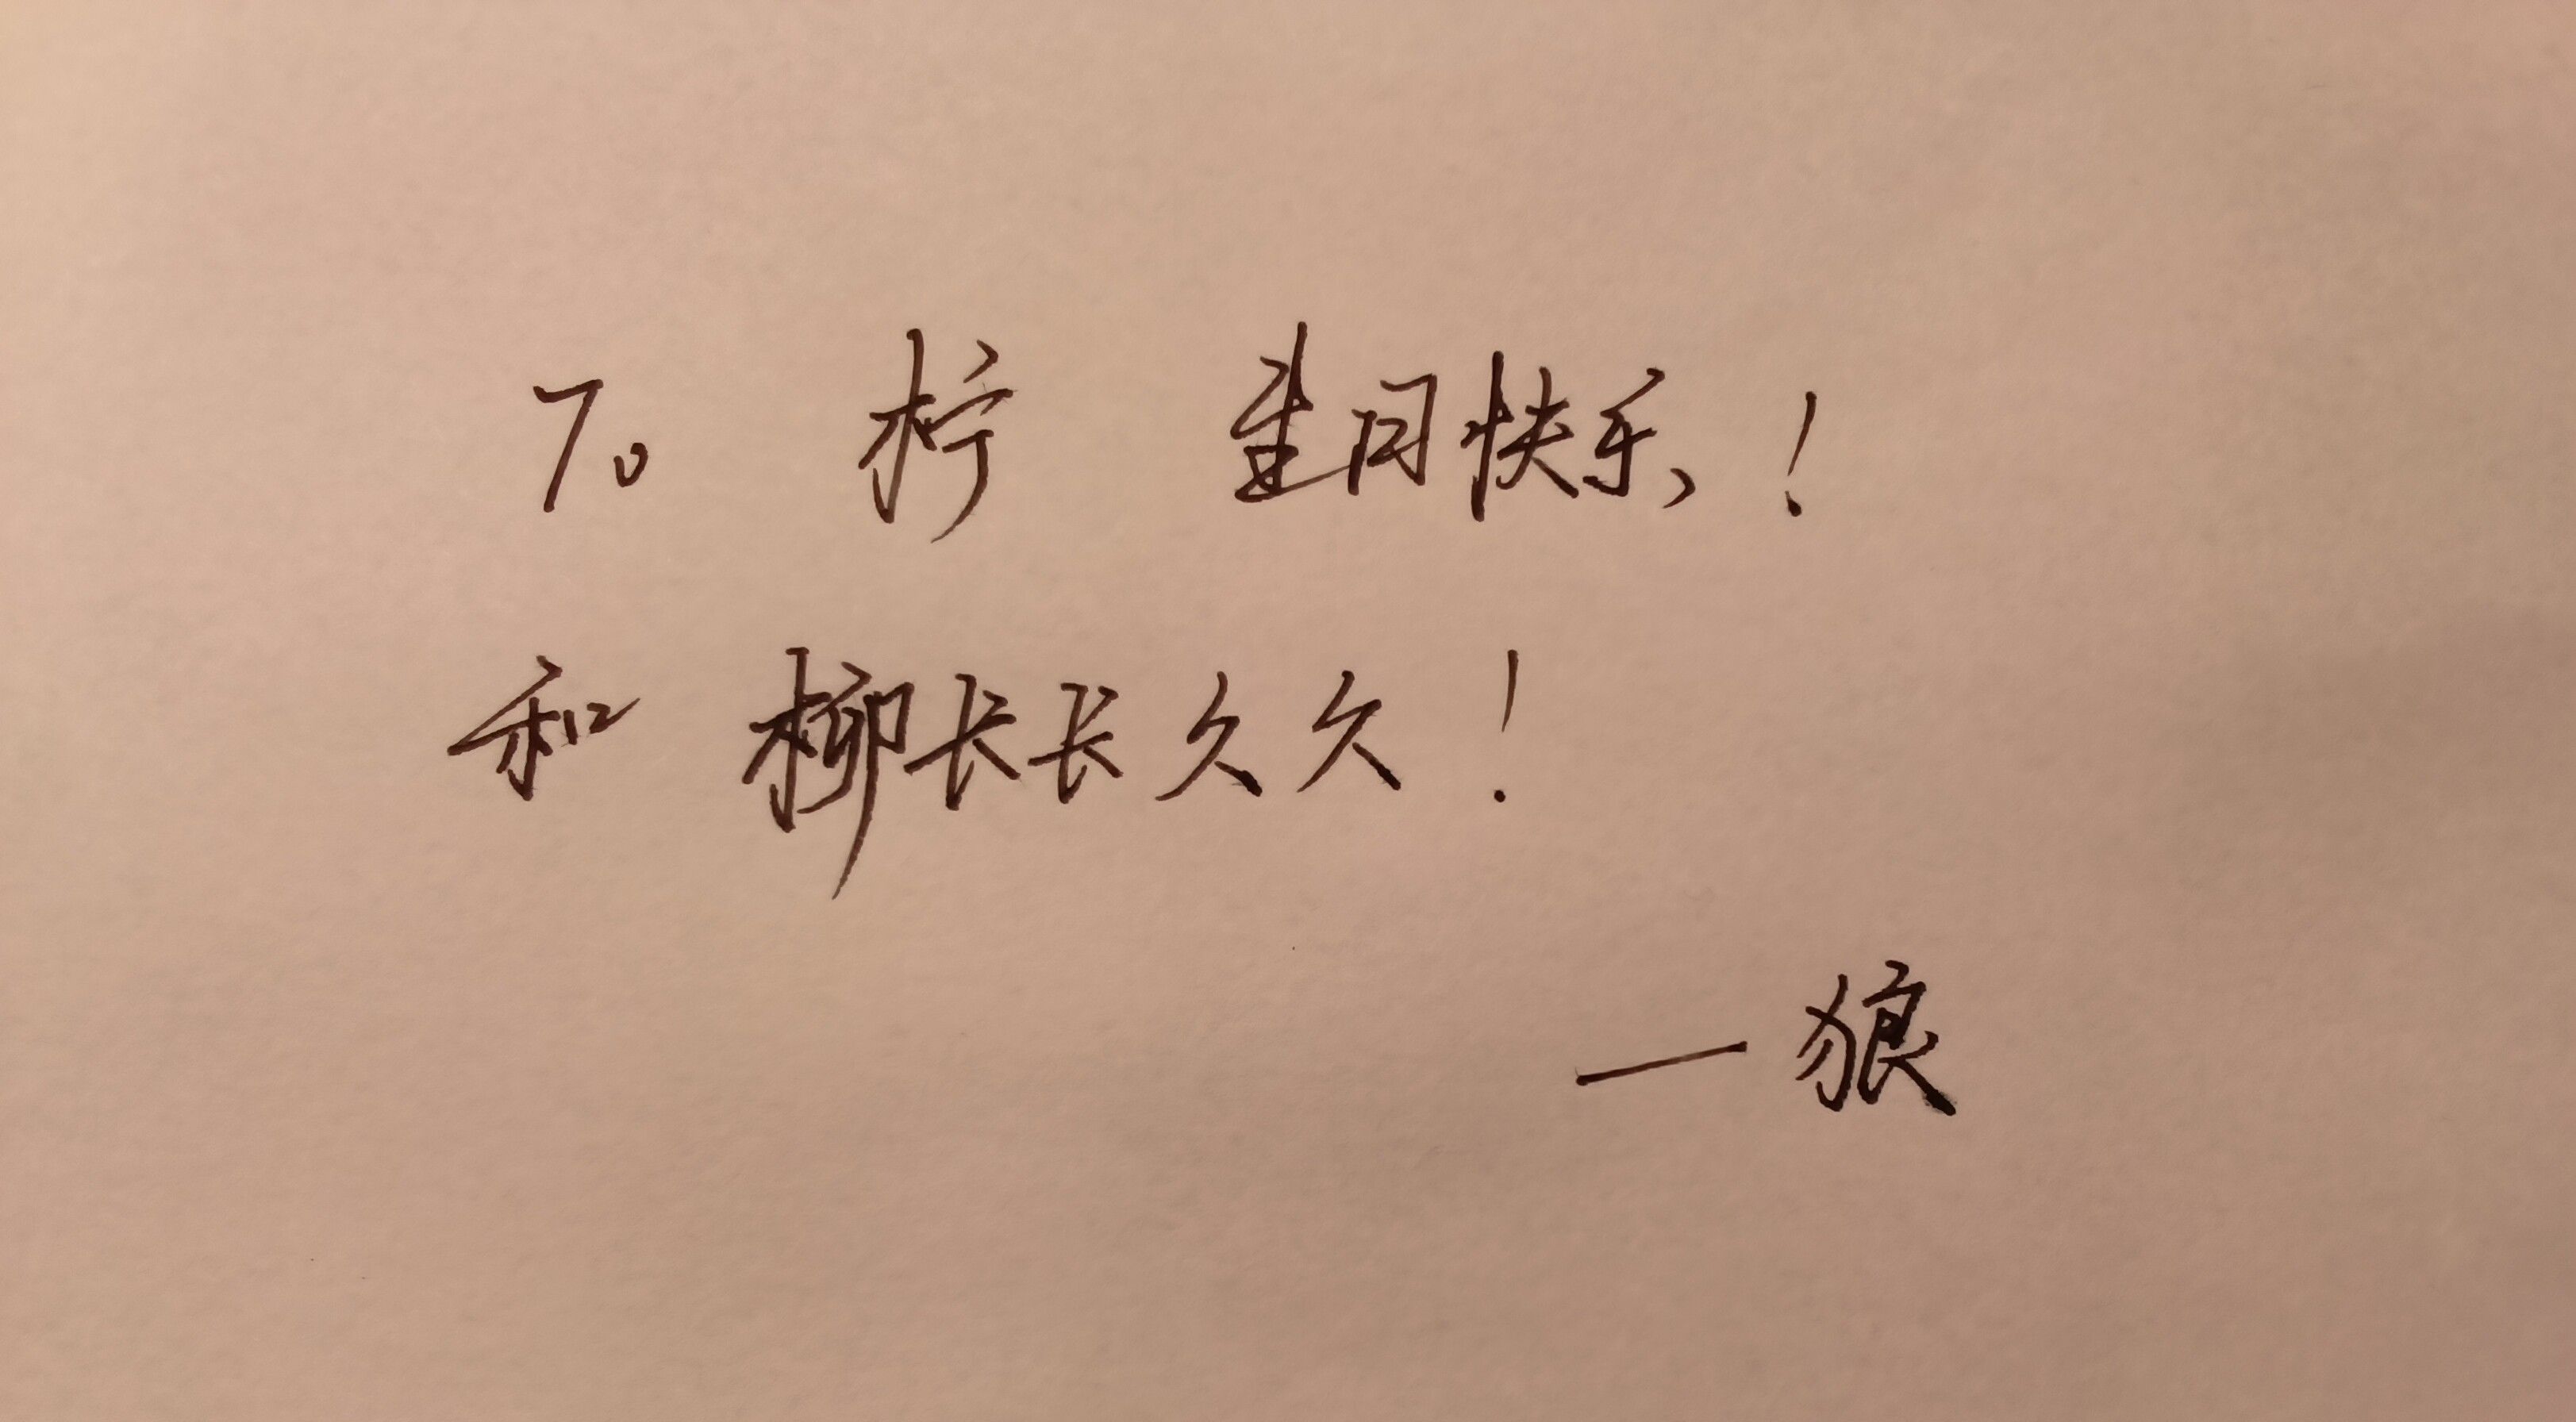 To 柠 生日快乐!
和 柳长长久久!
—狼